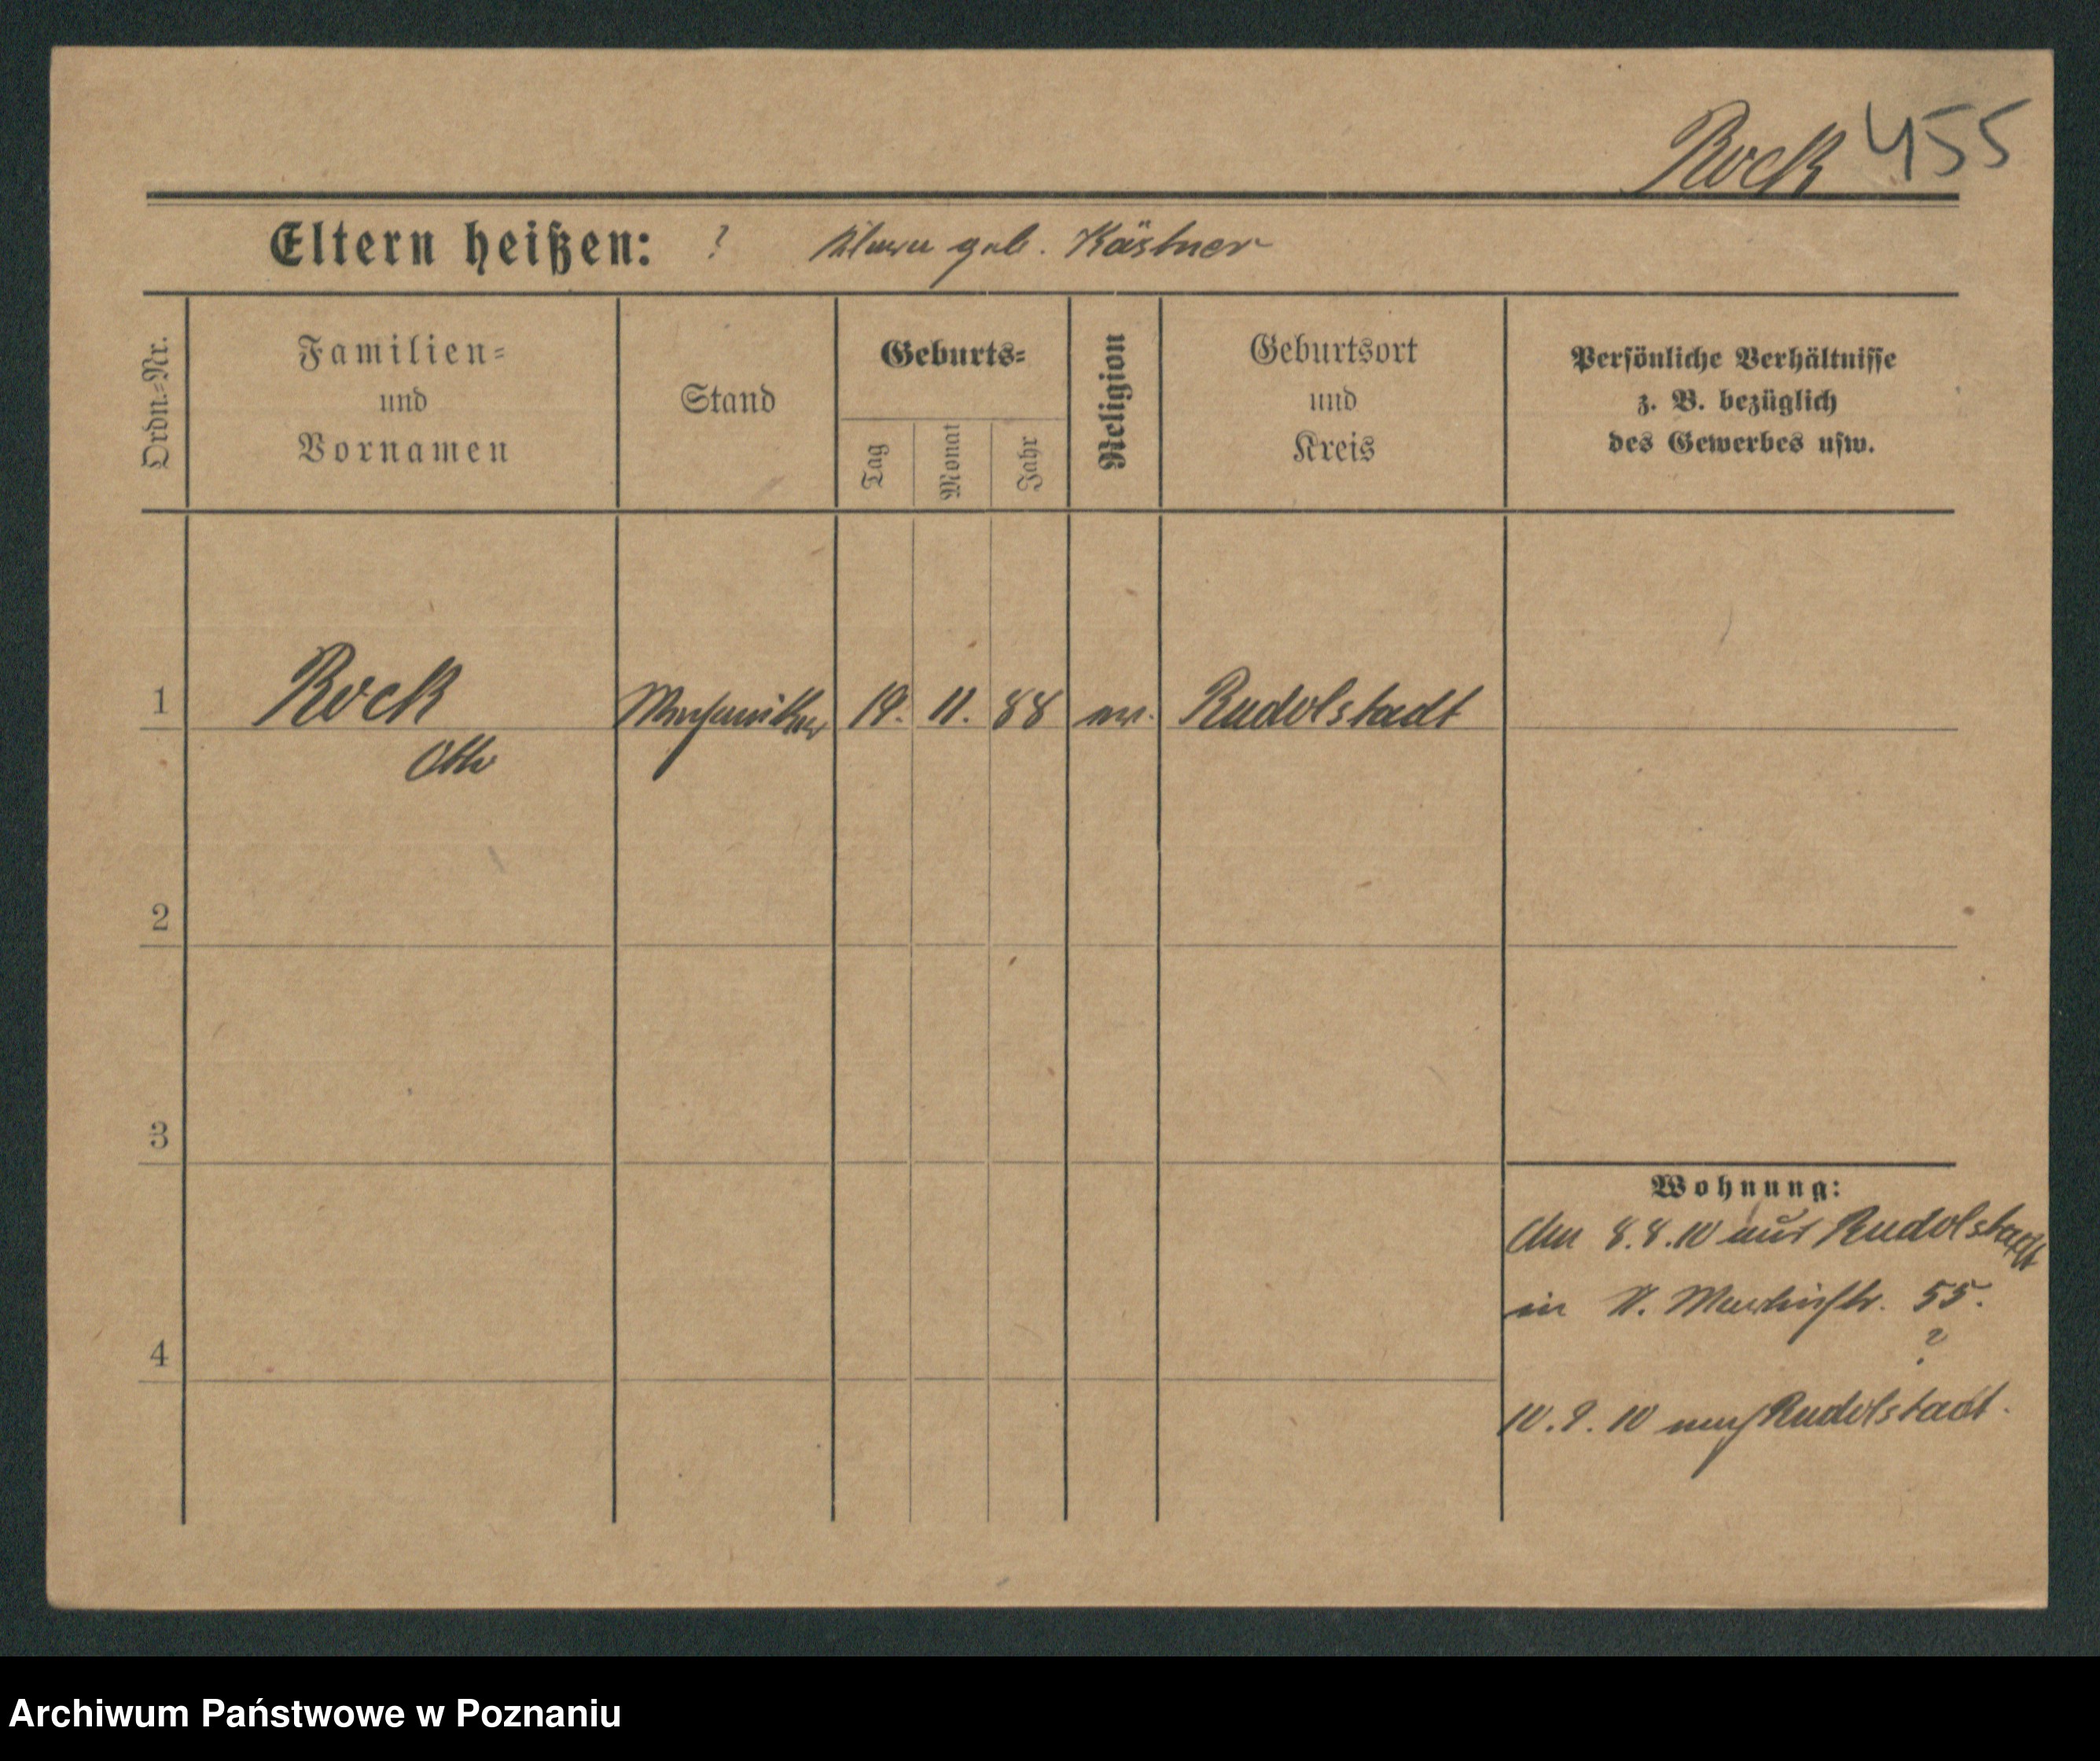 Rock 455
Eltern heißen: ? Klara geb. Kästner
Ordn.-Nr.
Familien-
und
Vornamen
Stand
Geburts-
Tag
Monat
Jahr
Religion
Geburtsort
und
Kreis
Persönliche Verhältnisse
z. B. bezüglich
des Gewerbes usw.
1 Rock Mechaniker 19. 11. 88 ev. Rudolstadt
Otto
2
3
4
Wohnung:
Am 8.8.10 aus Rudolstadt
in St. Martinstr. 55.
?
10.9.10 nach Rudolstadt.
Archiwum Państwowe w Poznaniu